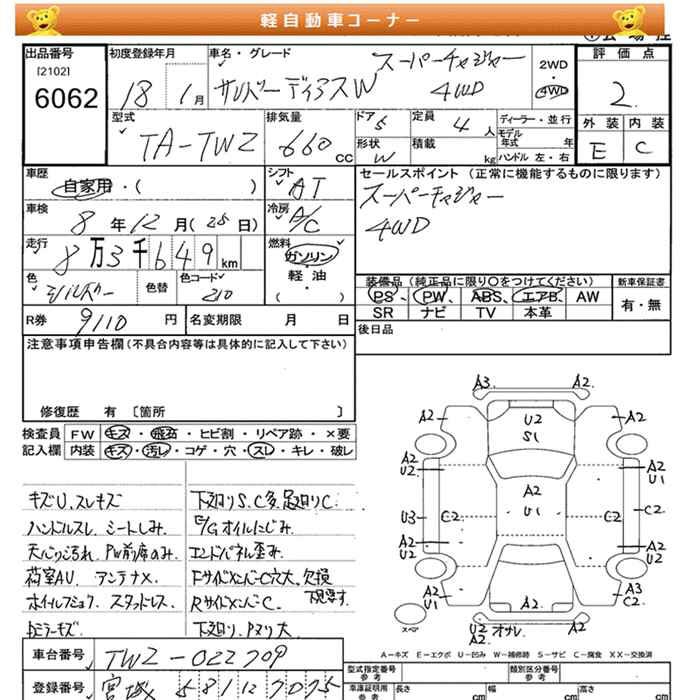 軽自動車コーナー
出品番号
[2102]
6062
初度登録年月
18 1月
車名・グレード
サンバーディアスW
スーパーチャージャー
4WD
2WD
・
4WD
評価点
2
外装 内装
E C
型式
TA-TW2
排気量
660 cc
ドア 5
形状 W
定員 4 人
積載 kg
ディーラー・並行
モデル年式 年
ハンドル 左・右
車歴
自家用・( )
シフト
AT
セールスポイント (正常に機能するものに限ります)
スーパーチャージャー
4WD
車検
8年12月(25日)
冷房
A/C
走行
8万3千649km
燃料
ガソリン
・
軽・油
( )
色
シルバー
色替
色コード
210
装備品(純正品に限り〇をつけてください)
PS、PW、ABS、エアB、AW
SR ナビ TV 本革
新車保証書
有・無
R券 9110 円
名変期限 月 日
後日品
注意事項申告欄(不具合内容等は具体的に記入して下さい)
修復歴 有 〔箇所 〕
検査員 FW キズ・飛石・ヒビ割・リペア跡・×要
記入欄 内装 キズ・汚レ・コゲ・穴・スレ・キレ・破レ
キズU.スレキズ
ハンドルスレ.シートしみ.
天バリ汚れ PW前席のみ.
荷室AU. アンテナX.
ホイルフショク. スタッドレス.
下廻りS.C多.足廻りC.
E/Gオイルにじみ.
エンドパネル歪み.
FサイドメンバーC穴大.欠損
RサイドメンバーC.
下見要す.
A3 A2
A2 A2
U2
S1
A2
U2
A2
U1
A2
U1
U3 C2 C2 C2
A2
U2
A2
U1
A2
U1
A2
A3
C2
スペア
U2
A2
オサレ
A-キズ E-エクボ U-凹み W-補修跡 S-サビ C-腐食 XX-交換済
車台番号
TW2-022709
登録番号
宮城 581 い 7075
型式指定番号
参考
類別区分番号
参考
車庫証明用
参考
長さ cm
幅 cm
高さ cm